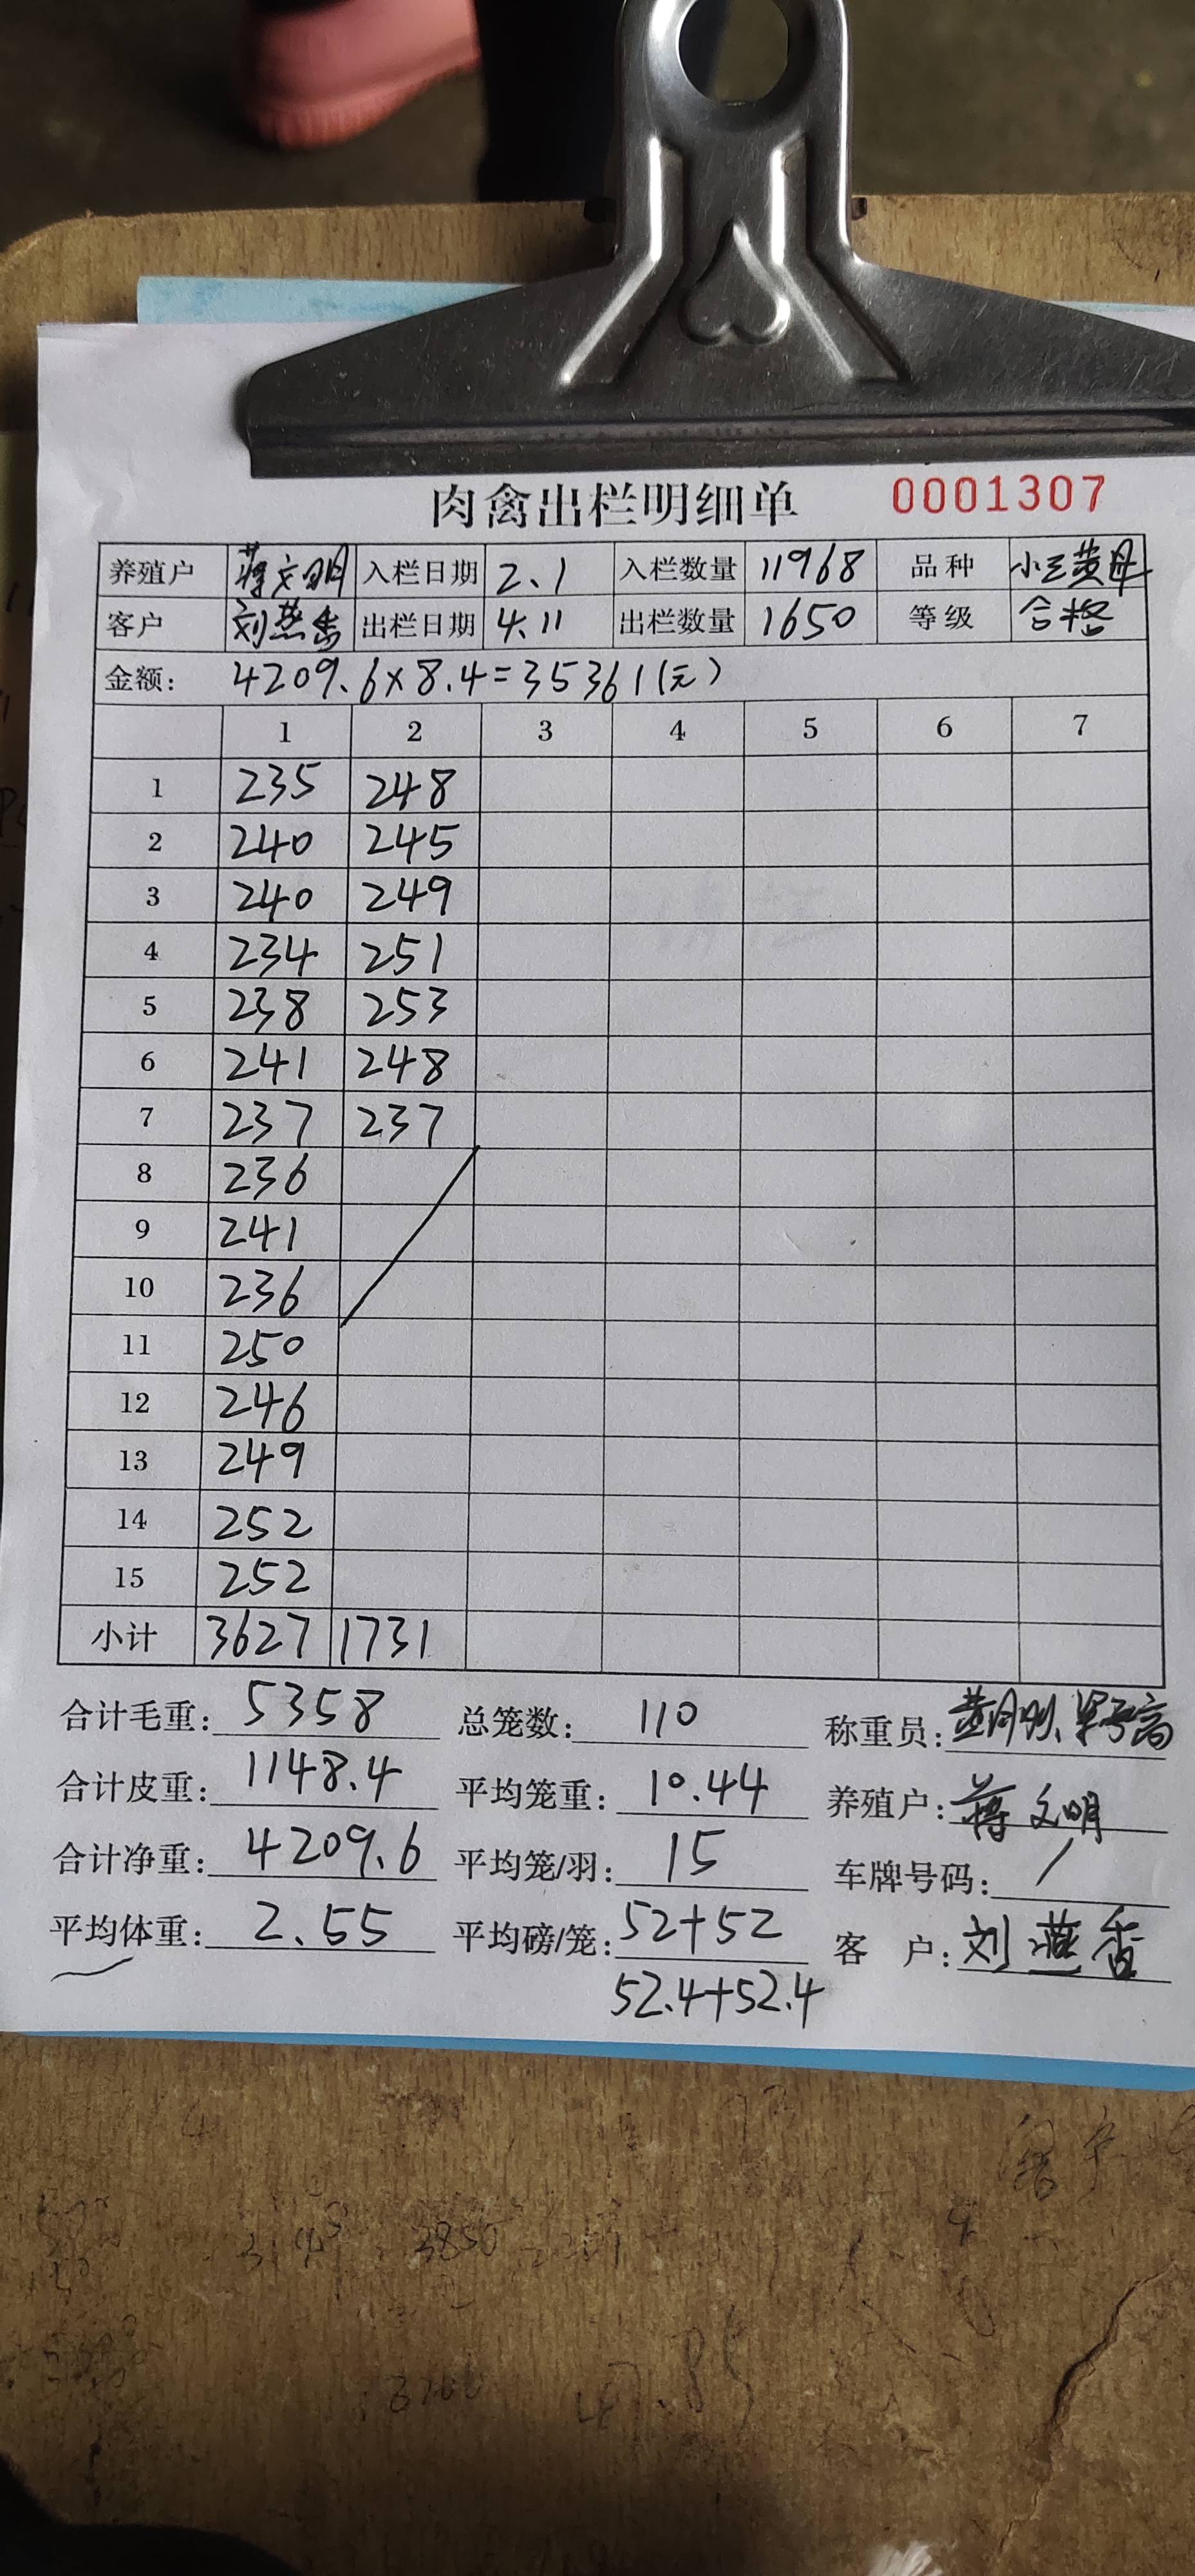 肉禽出栏明细单 0001307
养殖户 蒋文明 入栏日期 2.1 入栏数量 11968 品种 小三黄母
客户 刘燕香 出栏日期 4.11 出栏数量 1650 等级 合格
金额: 4209.6×8.4=35361(元)
1 2 3 4 5 6 7
1 235 248
2 240 245
3 240 249
4 234 251
5 238 253
6 241 248
7 237 237
8 236
9 241
10 236
11 250
12 246
13 249
14 252
15 252
小计 3627 1731
合计毛重: 5358 总笼数: 110 称重员:
合计皮重: 1148.4 平均笼重: 10.44 养殖户: 蒋文明
合计净重: 4209.6 平均笼/羽: 15 车牌号码: /
平均体重: 2.55 平均磅/笼: 52+52 客 户: 刘燕香
52.4+52.4